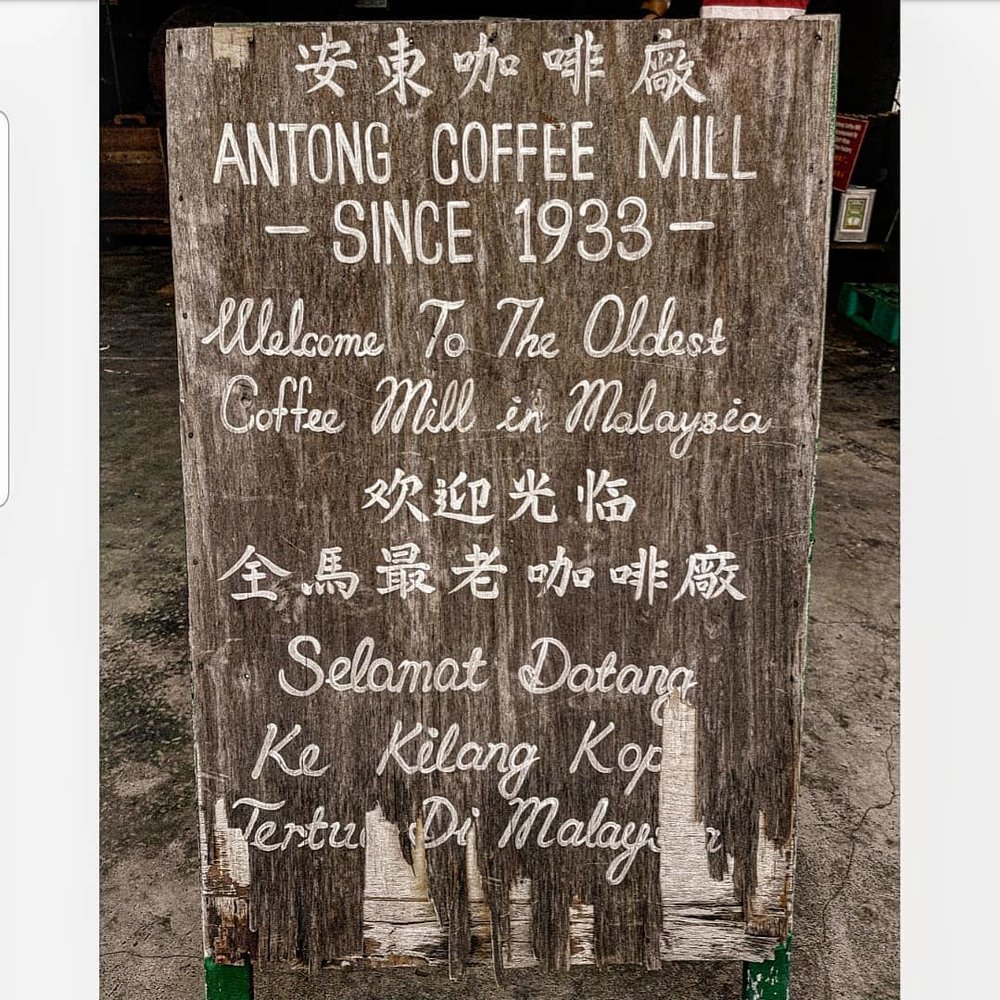 安東咖啡廠
ANTONG COFFEE MILL
- SINCE 1933 -
Welcome To The Oldest
Coffee Mill in Malaysia
欢迎光临
全馬最老咖啡廠
Selamat Datang
Ke Kilang Kop
Tertu Di Malays